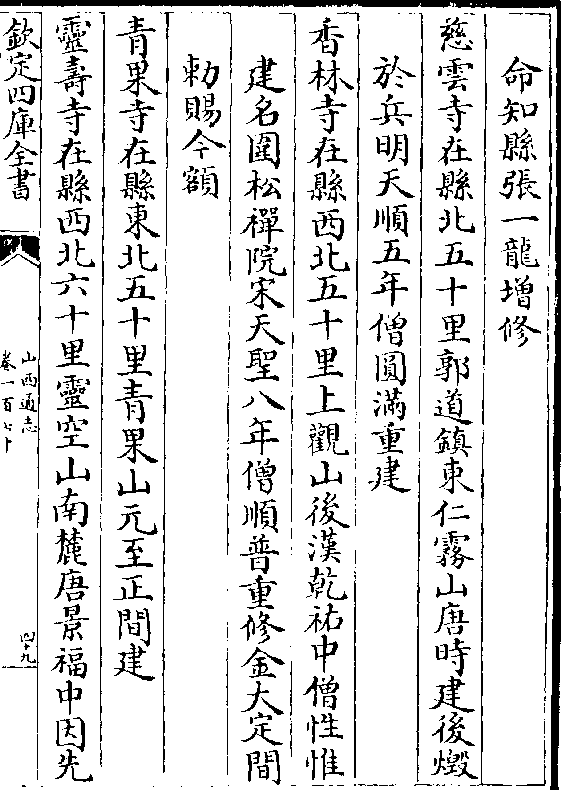 命知縣張一龍增修
慈雲寺在縣北五十里郭道鎮東仁霧山唐時建後燬
於兵明天順五年僧圓滿重建
香林寺在縣西北五十里上觀山後漢乾祐中僧性惟
建名圍松禪院宋天聖八年僧順普重修金大定間
勅賜今額
青果寺在縣東北五十里青果山元至正間建
靈壽寺在縣西北六十里靈空山南麓唐景福中因先
欽定四庫全書
山西通志
卷一百七十
四十九